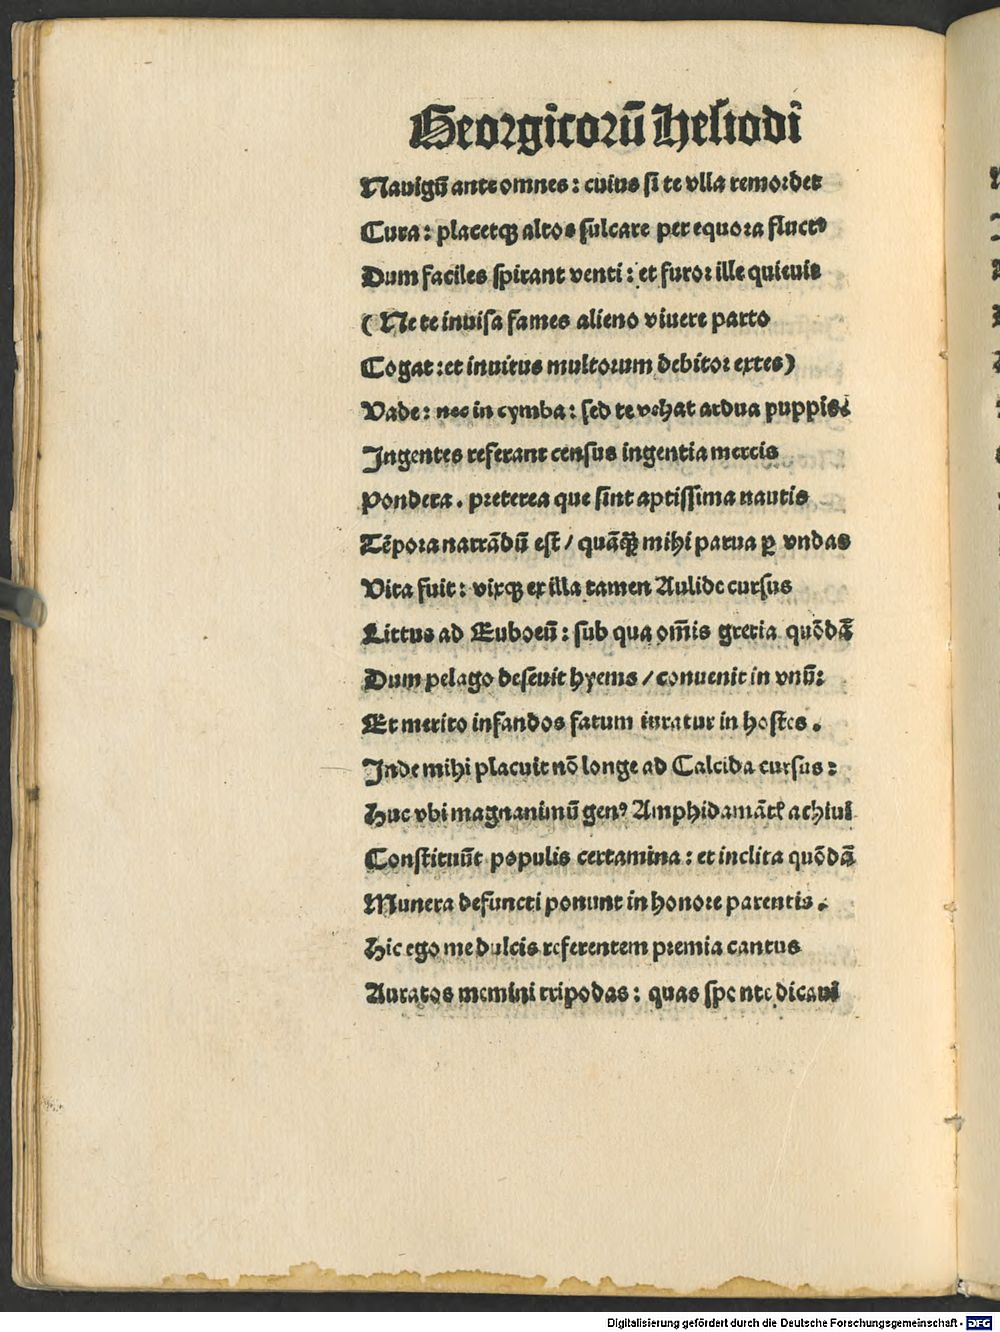 Georgicorū Hesiodi
Nauigū ante omnes: cuius si te vlla remordet
Cura: placetqꝫ altos sulcare per equora fluctꝰ
Dum faciles spirant venti: et furor ille quieuit
(Ne te inuisa fames alieno viuere parto
Cogat: et inuitus multorum debitor extes)
Vade: nec in cymba: sed te vehat ardua puppis:
Ingentes referant census ingentia mercis
Pondera. preterea que sint aptissima nautis
Tēpora narrādū est / quāqꝫ mihi parua ꝑ vndas
Vita fuit: vixqꝫ ex illa tamen Aulide cursus
Littus ad Euboeū: sub qua om̄is grecia quōdā
Dum pelago deseuit hyems / conuenit in vnū:
Et merito infandos fatum iuratur in hostes.
Inde mihi placuit nō longe ad Calcida cursus:
Huc vbi magnanimū genꝰ Amphidamāt achiui
Constituūt populis certamina: et inclita quōdā
Munera defuncti ponunt in honore parentis.
Hic ego me dulcis referentem premia cantus
Auratos memini tripodas: quas sponte dicaui
Digitalisierung gefördert durch die Deutsche Forschungsgemeinschaft - DFG